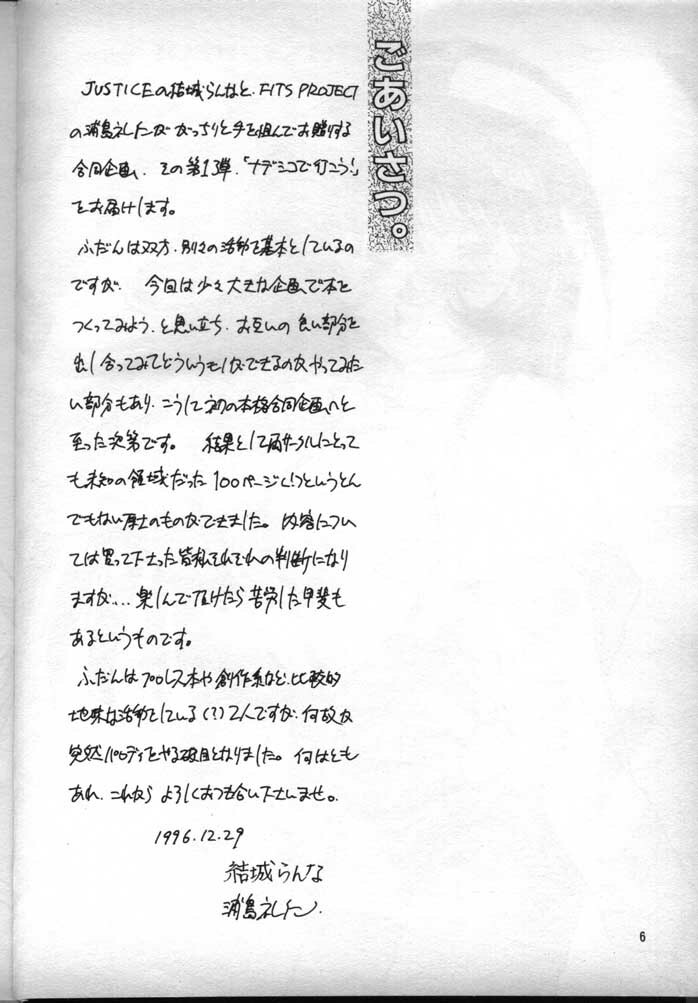 ごあいさつ。
JUSTICEの結城らんなと、FITS PROJECT
の浦島礼仁がガッちりと手を組んでお贈りする
合同企画、その第1弾、「ナデシコで行こう!」
をお届けします。
ふだんは双方、別々の活動を基本としているの
ですが、今回は少々大きな企画で本を
つくってみよう、と思い立ち、お互いの良い部分を
出し合ってみてどういうものができるのかやってみた
い部分もあり、こうして初の本格合同企画へと
至った次第です。結果として両サークルにとって
も未知の領域だった100ページ
というとん
でもない厚さのものができました。内容につい
ては買って下さった皆様それぞれの判断になり
ますが…楽しんで頂けたら苦労した甲斐も
あるというものです。
ふだんはプロレス本や創作系など、比較的
地味な活動をしている(?)2人ですが、何故か
突然パロディをやる破目となりました。何はとも
あれ、これから よろしくおつき合い下さいませ。
1996.12.29
結城らんな
浦島
6